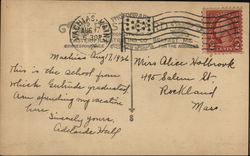 MACHIAS, MAINE
AUG 17
FOR THE ADDRESS
Machias Aug 17, 1926
This is the school from
which Gertrude graduated
Am spending my vacation
here
Sincerely yours,
Adelaide Hall
Miss Alice Holbrook
496 Salem St.
Rockland
Mass.